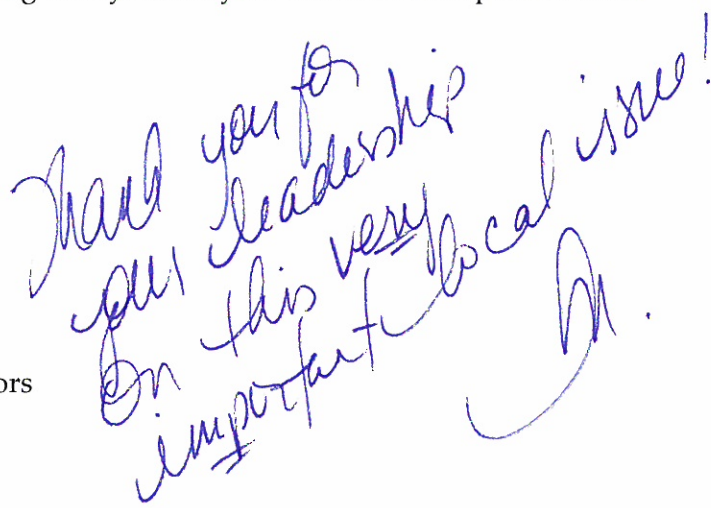 Thank you for
your leadership
on this very
important local issue!
M.
ors